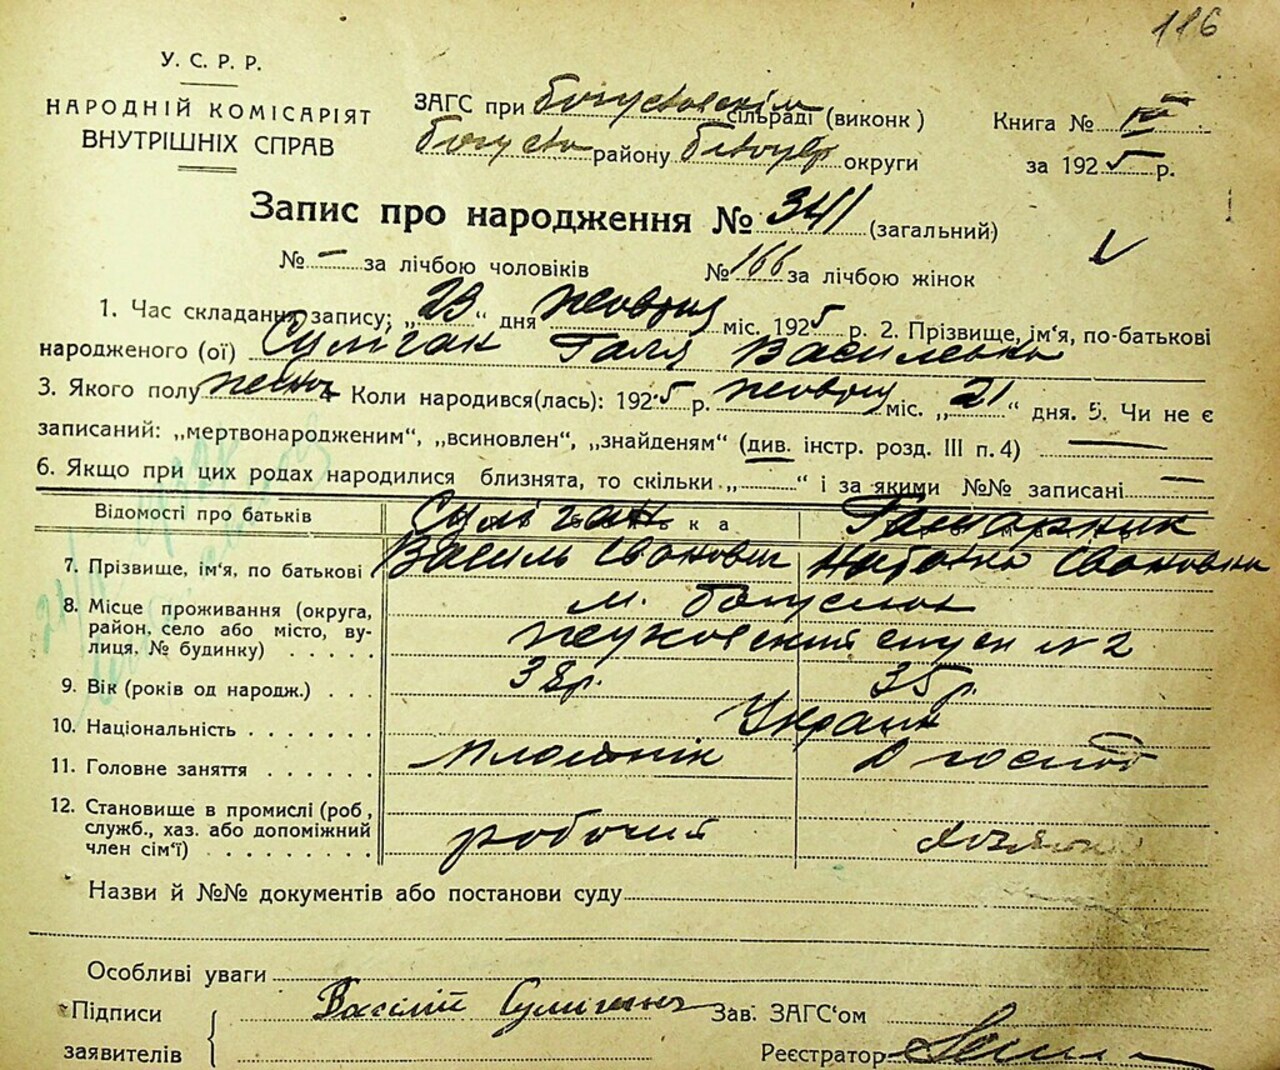 116
У. С. Р. Р.
НАРОДНІЙ КОМІСАРІЯТ
ВНУТРІШНІХ СПРАВ
ЗАГС при Богуславскім сільраді (виконк)
району округи
Книга №
за 1925 р.
Запис про народження № 341 (загальний)
№ — за лічбою чоловіків № 166 за лічбою жінок
1. Час складання запису: „23“ дня жовтня міс. 1925 р. 2. Прізвище, ім‘я, по-батькові
народженого (ої) Сулігак Галя Васильевна
3. Якого полу жіноч Коли народився(лась): 1925 р. жовтня міс. „21“ дня. 5. Чи не є
записаний: „мертвонародженим“, „всиновлен“, „знайденям“ (див. інстр. розд. III п. 4) —
6. Якщо при цих родах народилися близнята, то скільки „ “ і за якими №№ записані —
Відомості про батьків Сулігак Гамарник
7. Прізвище, ім‘я, по батькові Василь Іванович Наталка Івановна
8. Місце проживання (округа, м. Богуслав
район, село або місто, ву-
лиця, № будинку) . . . . . №2
9. Вік (років од народж.) . . . 38р. 35р.
10. Національність . . . . . . . Украин
11. Головне заняття . . . . . . плотнік
12. Становище в промислі (роб,
служб., хаз. або допоміжний робочий
член сім‘ї) . . . . . . . .
Назви й №№ документів або постанови суду
Особливі уваги
Підписи Зав. ЗАГС‘ом
заявителів Реєстратор